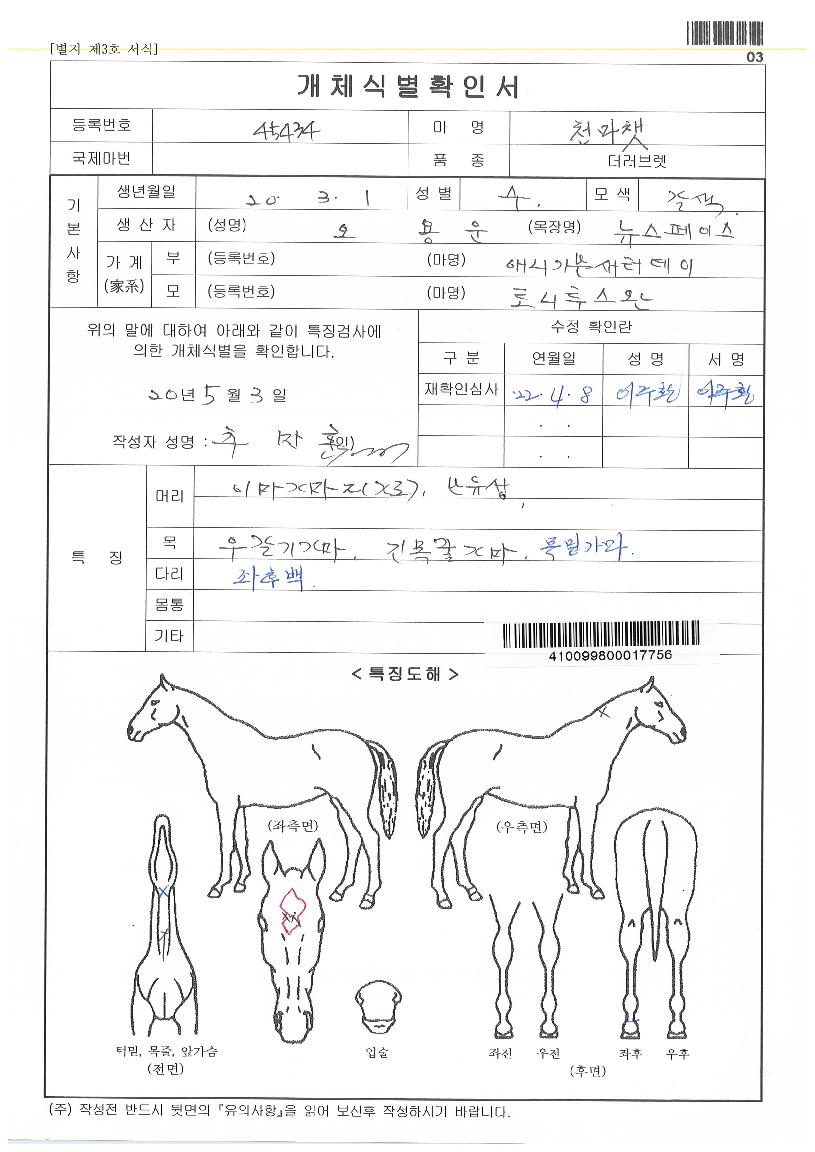 [별지 제3호 서식]
03
개체식별확인서
등록번호 45434 마 명 천마챗
국제마번 품 종 더러브렛
기본사항
생년월일 20. 3. 1 성 별 수. 모 색 갈색.
생 산 자 (성명) 오 용 운 (목장명) 뉴스페이스
가 계 (家系) 부 (등록번호) (마명)
모 (등록번호) (마명) 토시투스완
위의 말에 대하여 아래와 같이 특징검사에
의한 개체식별을 확인합니다.
20년 5월 3일
작성자 성명 : 추 인)
수정 확인란
구 분 연월일 성 명 서 명
재확인심사 '22. 4. 8 이주환 이주환
. .
. .
특 징
머리 이마가마 2(X3), 반유상,
목 우갈기가마, 긴목줄가마, 목밑가마.
다리 좌후백.
몸통
기타
410099800017756
< 특징도해 >
(좌측면) (우측면)
턱밑, 목줄, 앞가슴
(전면)
입술
좌전 우전
좌후 우후
(후면)
(주) 작성전 반드시 뒷면의 『유의사항』을 읽어 보신후 작성하시기 바랍니다.